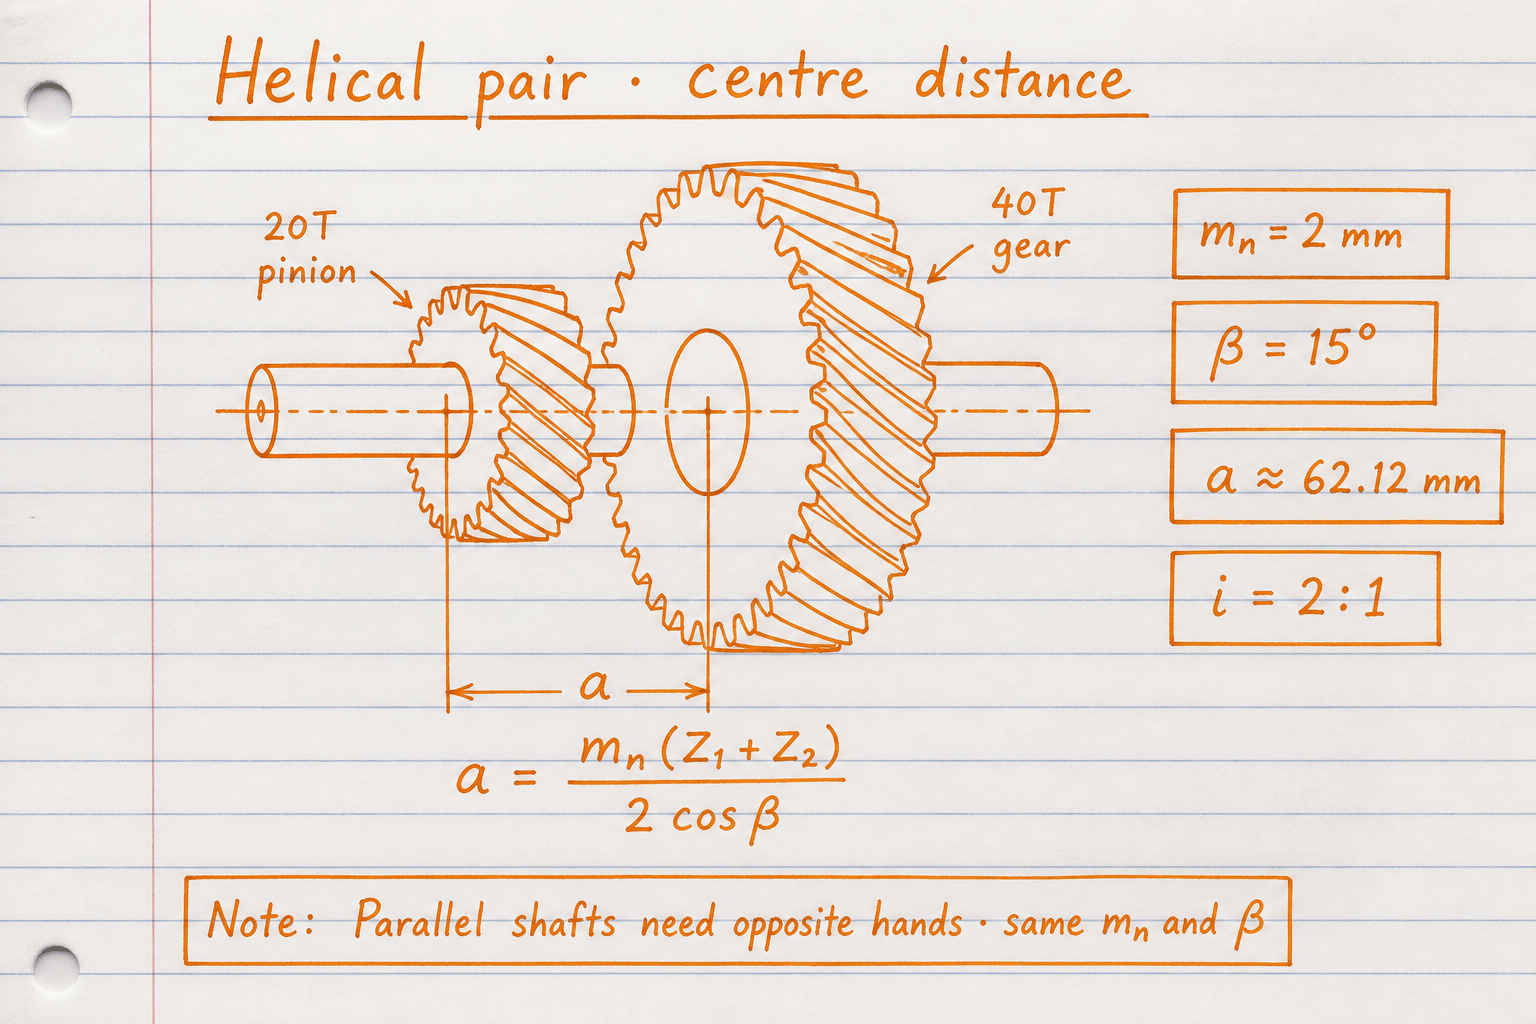 Helical pair · centre distance
20T
pinion
40T
gear
mₙ = 2 mm
β = 15°
a ≈ 62.12 mm
i = 2:1
a
a = mₙ (Z₁ + Z₂)
2 cos β
Note: Parallel shafts need opposite hands · same mₙ and β